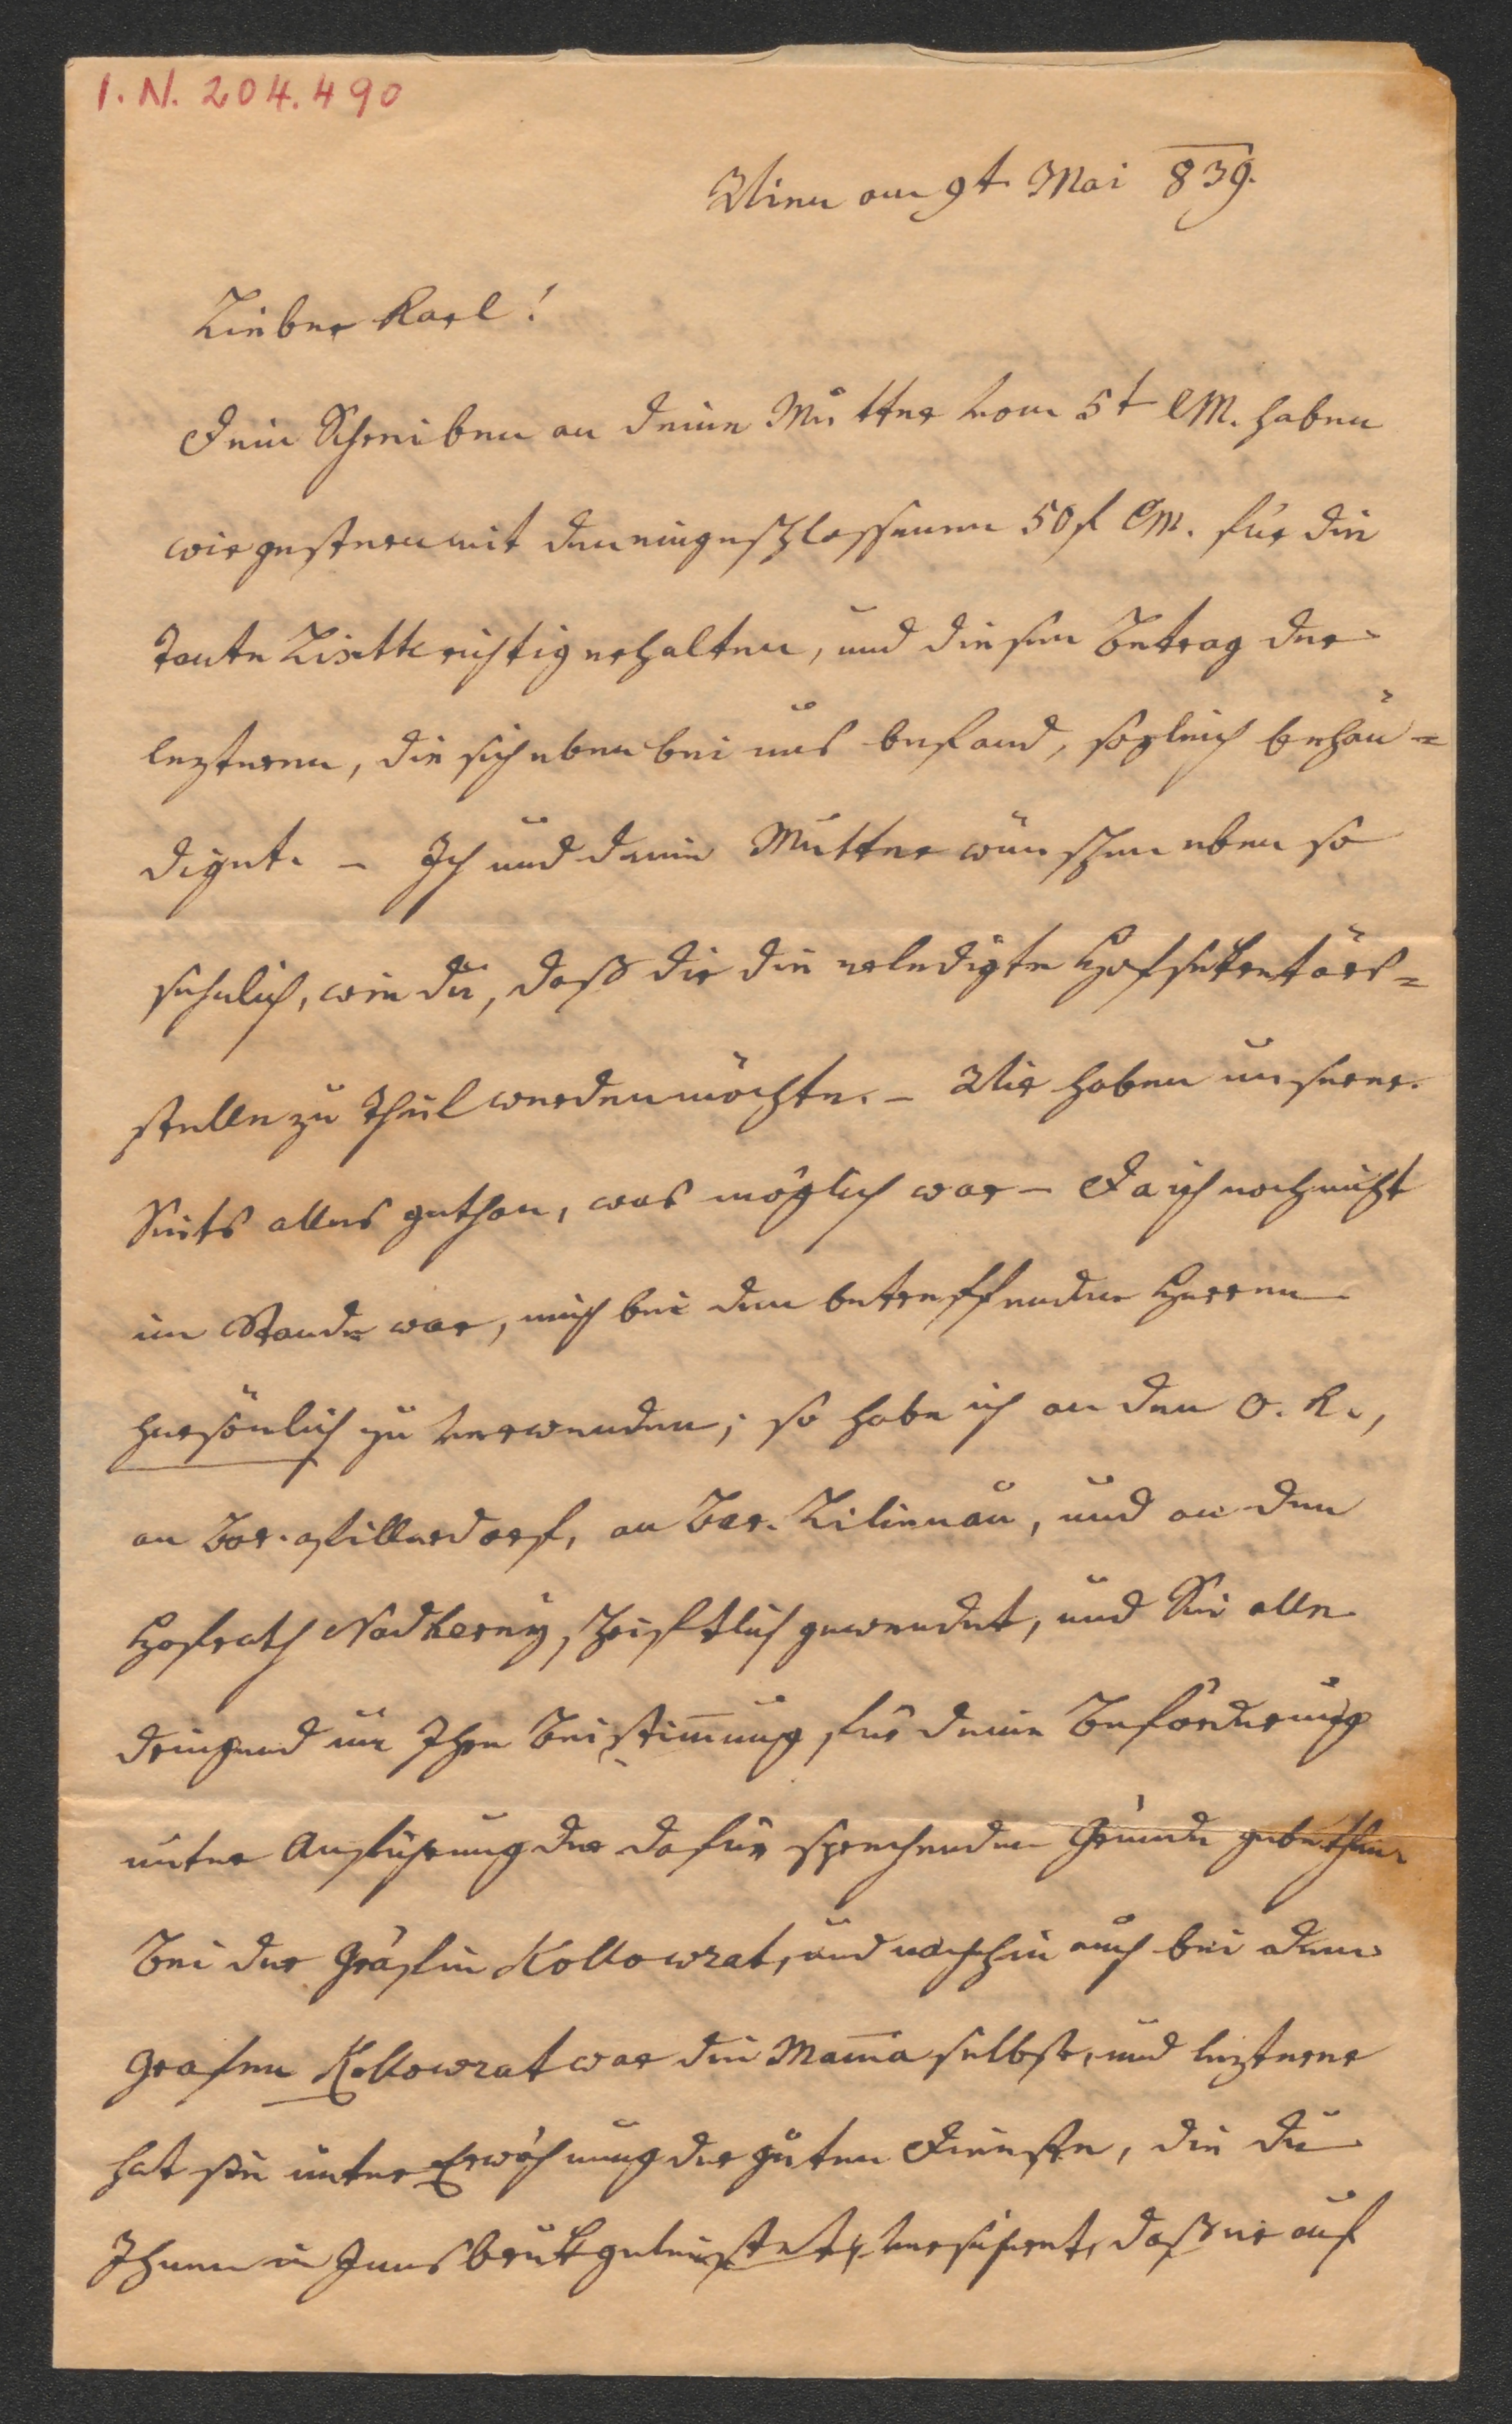 I. N. 204.490
Wien am 9t Mai 839.
Lieber Karl!
Dein Schreiben an deine Mutter vom 5t CM. haben
wir gestern mit den eingeschlossenen 50f CM. für die
Tante Lisette richtig erhalten, und diesen Betrag der
lezteren, die sich eben bei uns befand, sogleich behän=
diget. – Ich und deine Mutter wünschen eben so
sehnlich, wie du, daß dir die erledigte Hofsekretärs=
stelle zu Theil werden möchte. – Wir haben unserer
Seits alles gethan, was möglich war – Da ich noch nicht
im Stande war, mich bei den betreffenden Herren
persönlich zu verwenden; so habe ich an den O. K.,
an Bar. Pillersdorf, an Bar. Lilienau, und an den
Hofrath Nadherny, schriftlich gewendet, und Sie alle
dringend um Ihre Beistimung für deine Beförderung
unter Anführung der dafür sprechenden Gründe gebethen
Bei der Gräfin Kollowrat, und nachhin auch bei dem
Grafen Kollowrat war die Mama selbst, und lezterer
hat sie unter Erwähnung der guten Dienste, die du
Ihnen in Innsbruk geleistet, versichert, daß er auf